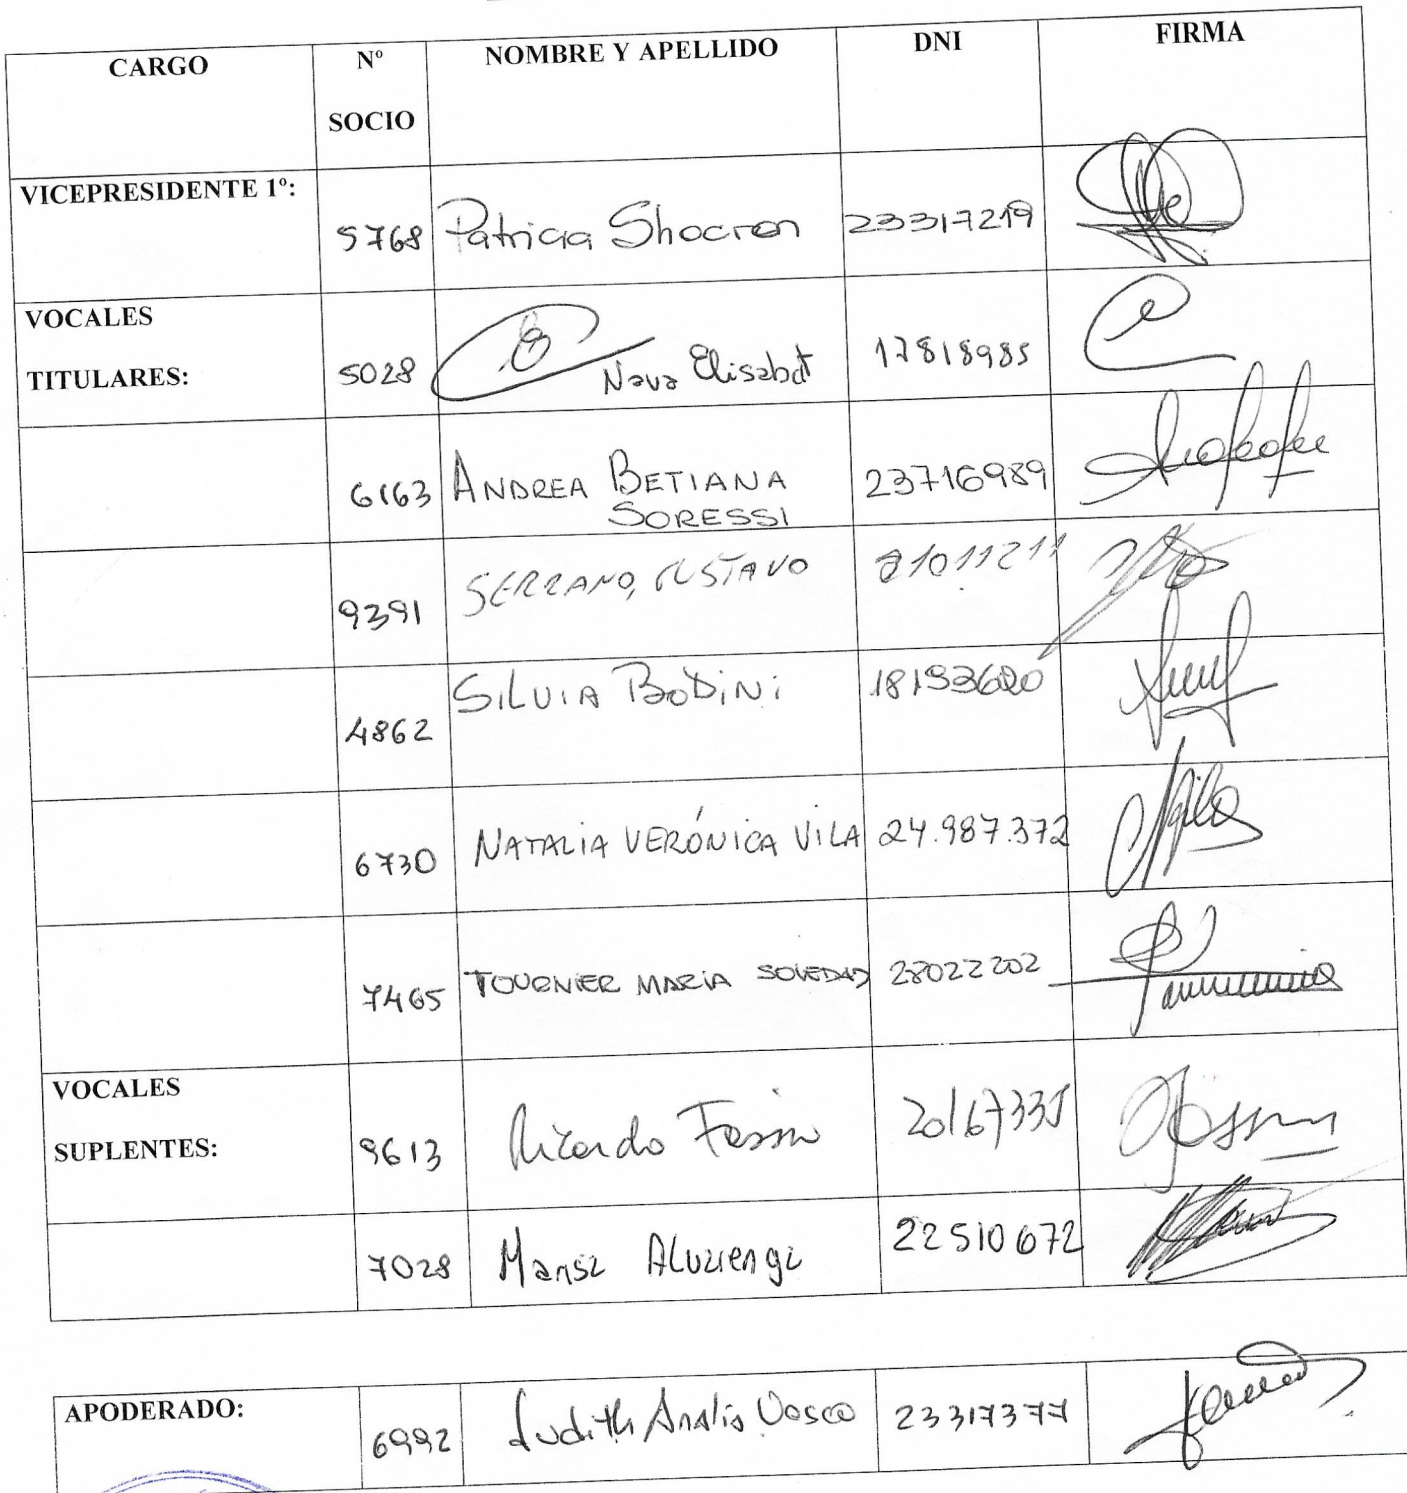 CARGO Nº SOCIO NOMBRE Y APELLIDO DNI FIRMA
VICEPRESIDENTE 1º: 5768 Patricia Shocron 23317219
VOCALES
TITULARES: 5028 Nava Elisabet 17818985
6163 ANDREA BETIANA SORESSI 23716989
9391 SERRANO, GUSTAVO 21011211
4862 SILVIA BODINI 18193620
6730 NATALIA VERÓNICA VILA 24.987.372
7465 TOURNIER MARIA SOLEDAD 28022202
VOCALES
SUPLENTES: 9613 Ricardo 20167335
7028 22510672
APODERADO: 6992 Judith Analia Vasco 23317377